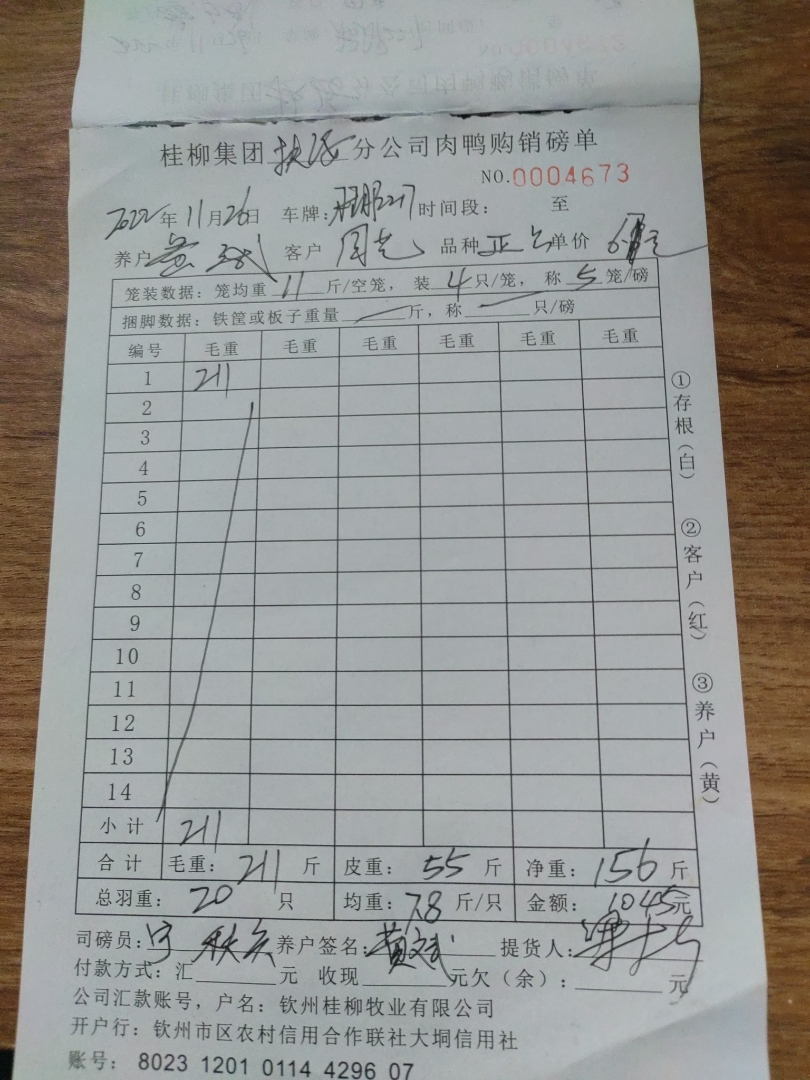 桂柳集团 分公司肉鸭购销磅单
NO.0004673
2022年11月26日 车牌: 217 时间段: 至
养户 黄 斌 客户 周 品种 正 单价
笼装数据: 笼均重 11 斤/空笼, 装 4 只/笼, 称 5 笼/磅
捆脚数据: 铁筐或板子重量 斤, 称 只/磅
编号 毛重 毛重 毛重 毛重 毛重 毛重
1 211
2
3
4
5
6
7
8
9
10
11
12
13
14
小计 211
合计 毛重: 211 斤 皮重: 55 斤 净重: 156 斤
总羽重: 20 只 均重: 7.8 斤/只 金额: 1045元
司磅员: 养户签名: 黄斌 提货人:
付款方式: 汇 元 收现 元欠(余): 元
公司汇款账号, 户名: 钦州桂柳牧业有限公司
开户行: 钦州市区农村信用合作联社大垌信用社
账号: 8023 1201 0114 4296 07
①存根(白) ②客户(红) ③养户(黄)